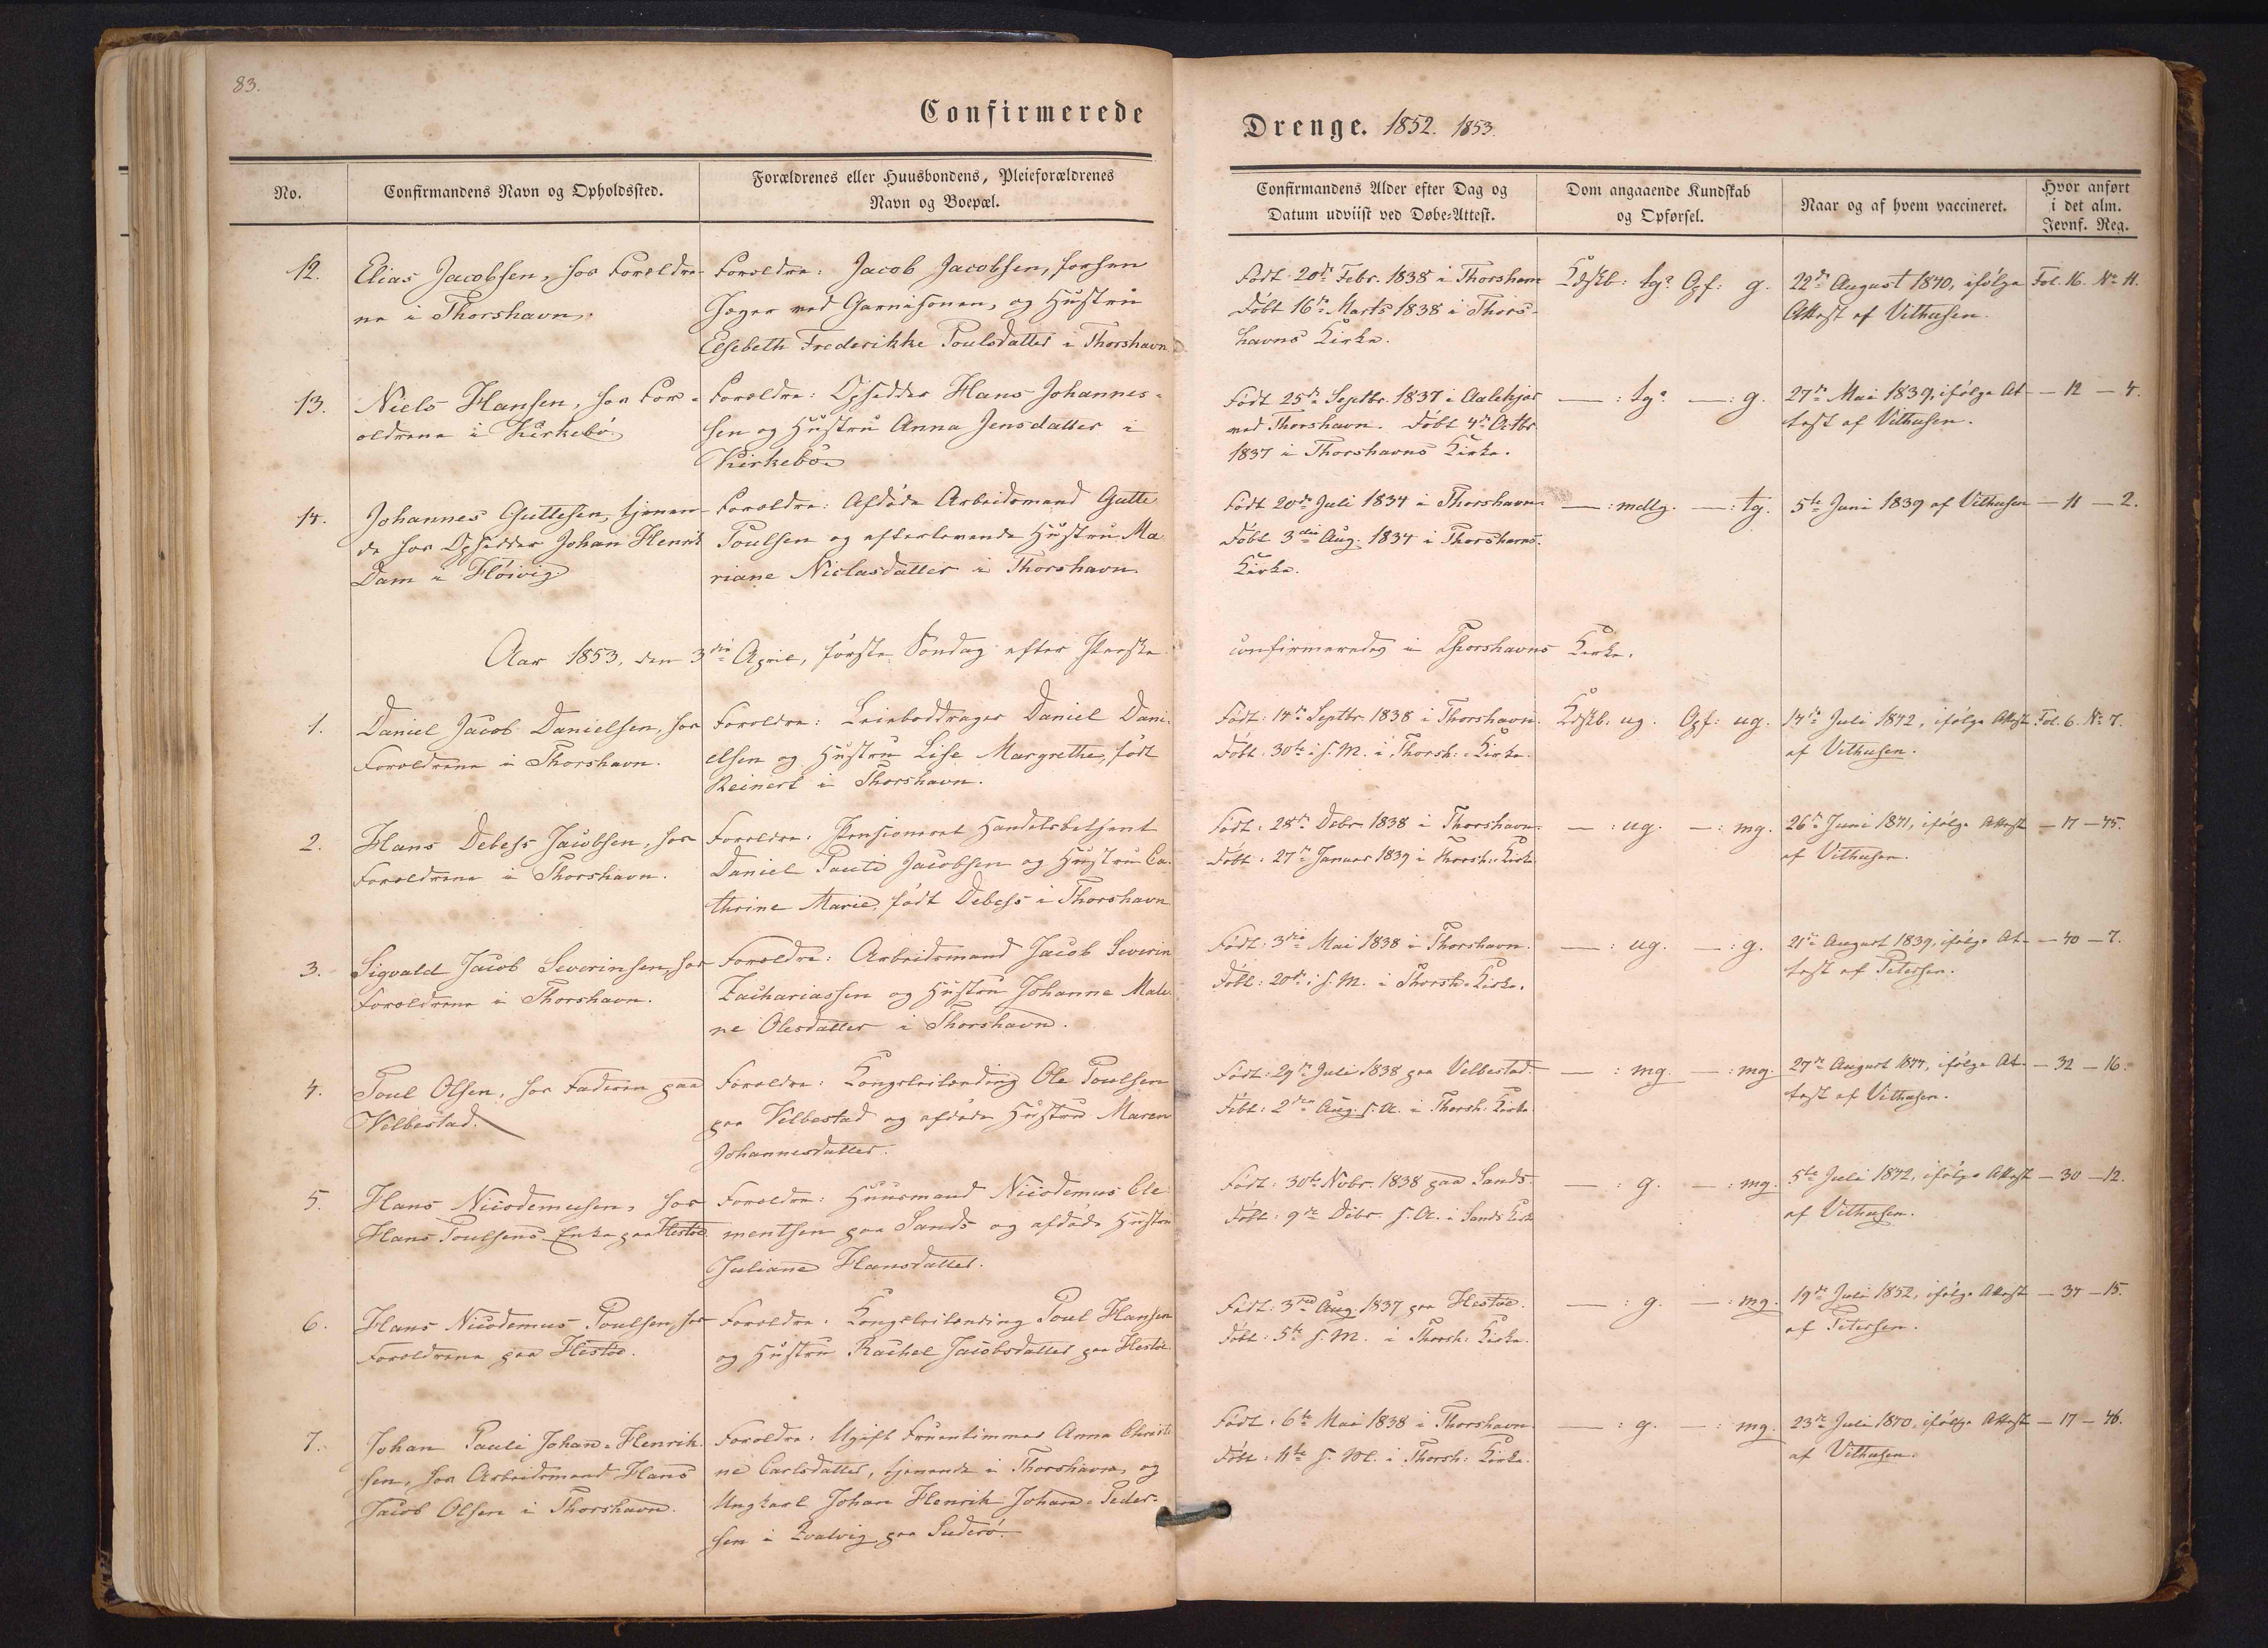 83.
Confirmerede
Drenge. 1852. 1853.
No.
Confirmandens Navn og Opholdssted.
Forældrenes eller Huusbondens, Pleieforældrenes
Navn og Boepæl.
Confirmandens Alder efter Dag og
Datum udviist ved Døbe-Attest.
Dom angaaende Kundskab
og Opførsel.
Naar og af hvem vaccineret.
Hvor anført
i det alm.
Jevnf. Reg.
12.
Elias Jacobsen, hos Forældre-
ne i Thorshavn.
Forældre: Jacob Jacobsen, forhen
Jæger ved Garnisonen, og Hustru
Elsebeth Frederikke Poulsdatter i Thorshavn
Født 20de Febr. 1838 i Thorshavn
Døbt 16de Marts 1838 i Thors-
havns Kirke.
Kdskb: tg? Opf: g.
22de August 1840, ifølge
Attest af Vilhelsen.
Fol. 16. No 11.
13.
Niels Hansen, hos For-
ældrene i Kirkebø
Forældre: Opsidder Hans Johannes-
sen og Hustru Anna Jensdatter i
Kirkebø
Født 25de Septbr. 1837 i Aalekjær
ved Thorshavn. Døbt 4de Octbr
1837 i Thorshavns Kirke.
— : tg? — : g.
27de Mai 1839, ifølge At-
test af Vilhelsen.
— 12 — 4.
14.
Johannes Guttesen, tjenen-
de hos Opsidder Johan Henrik
Dam i Høivig
Forældre: Afdøde Arbeidsmand Gutte
Poulsen og efterlevende Hustru Ma
riane Niclasdatter i Thorshavn
Født 20de Juli 1834 i Thorshavn
Døbt 3die Aug. 1834 i Thorshavns
Kirke.
— : mdlg. — : tg.
5te Juni 1839 af Vilhelsen
— 11 — 2.
Aar 1853, den 3die April, første Søndag efter Paaske confirmeredes i Thorshavns Kirke.
1.
Daniel Jacob Danielsen, hos
Forældrene i Thorshavn.
Forældre: Leieboddrager Daniel Dani-
elsen og Hustru Lise Margrethe, født
Reinert i Thorshavn.
Født: 14de Septbr. 1838 i Thorshavn.
Døbt: 30te i s. M. i Thorsh: Kirke.
Kdskb. ug. Opf: ug.
14de Juli 1842, ifølge Attest
af Vilhelsen.
Fol. 6. No 7.
2.
Hans Debess Jacobsen, hos
Forældrene i Thorshavn.
Forældre: Pensioneret Handelsbetjent
Daniel Pauli Jacobsen og Hustru Ca-
thrine Marie, født Debess i Thorshavn
Født: 28de Debr. 1838 i Thorshavn.
Døbt: 27de Januar 1839 i Thorsh: Kirke
— : ug. — : mg.
26de Juni 1841, ifølge Attest
af Vilhelsen.
— 17 — 45.
3.
Sigvald Jacob Severinsen, hos
Forældrene i Thorshavn.
Forældre: Arbeidsmand Jacob Severin
Zachariassen og Hustru Johanne Male-
ne Olesdatter i Thorshavn.
Født: 3die Mai 1838 i Thorshavn.
Døbt: 20de i s. M. i Thorsh. Kirke.
— : ug. — : g.
21de August 1839, ifølge At-
test af Petersen.
— 40 — 7.
4.
Poul Olsen, hos Faderen paa
Velbestad.
Forældre: Kongsleilænding Ole Poulsen
paa Velbestad og afdøde Hustru Maren
Johannesdatter.
Født: 29de Juli 1838 paa Velbestad.
Døbt: 2den Aug. s. A. i Thorsh. Kirke.
— : mg. — : mg.
27de August 1844, ifølge At-
test af Vilhelsen.
— 32 — 16.
5.
Hans Nicodemusen, hos
Hans Poulsens Enke paa Hestøe
Forældre: Huusmand Nicodemus Cle-
mentsen paa Sands og afdøde Hustru
Juliane Hansdatter.
Født: 30te Novbr. 1838 paa Sands.
Døbt: 9de Debr. s. A. i Sands Kirke
— : g. — : mg.
5te Juli 1842, ifølge Attest
af Vilhelsen.
— 30 — 12.
6.
Hans Nicodemus Poulsen, hos
Forældrene paa Hestøe.
Forældre: Kongsleilænding Poul Hansen
og Hustru Rachel Jacobsdatter paa Hestøe.
Født: 3die Aug. 1837 paa Hestøe.
Døbt: 5te s. M. i Thorsh: Kirke.
— : g. — : mg.
19de Juli 1852, ifølge Attest
af Petersen.
— 34 — 15.
7.
Johan Pauli Johan-Henrik-
sen, hos Arbeidsmand Hans
Jacob Olsen i Thorshavn.
Forældre: Ugift Fruentimmer Anna Christi
ne Carlsdatter, tjenende i Thorshavn, og
Ungkarl Johan Henrik Johan-Peder-
sen i Qvalvig paa Suderø.
Født: 6te Mai 1838 i Thorshavn
Døbt: 11te s. M. i Thorsh: Kirke.
— : g. — : mg.
23de Juli 1840, ifølge Attest
af Vilhelsen.
— 17 — 46.